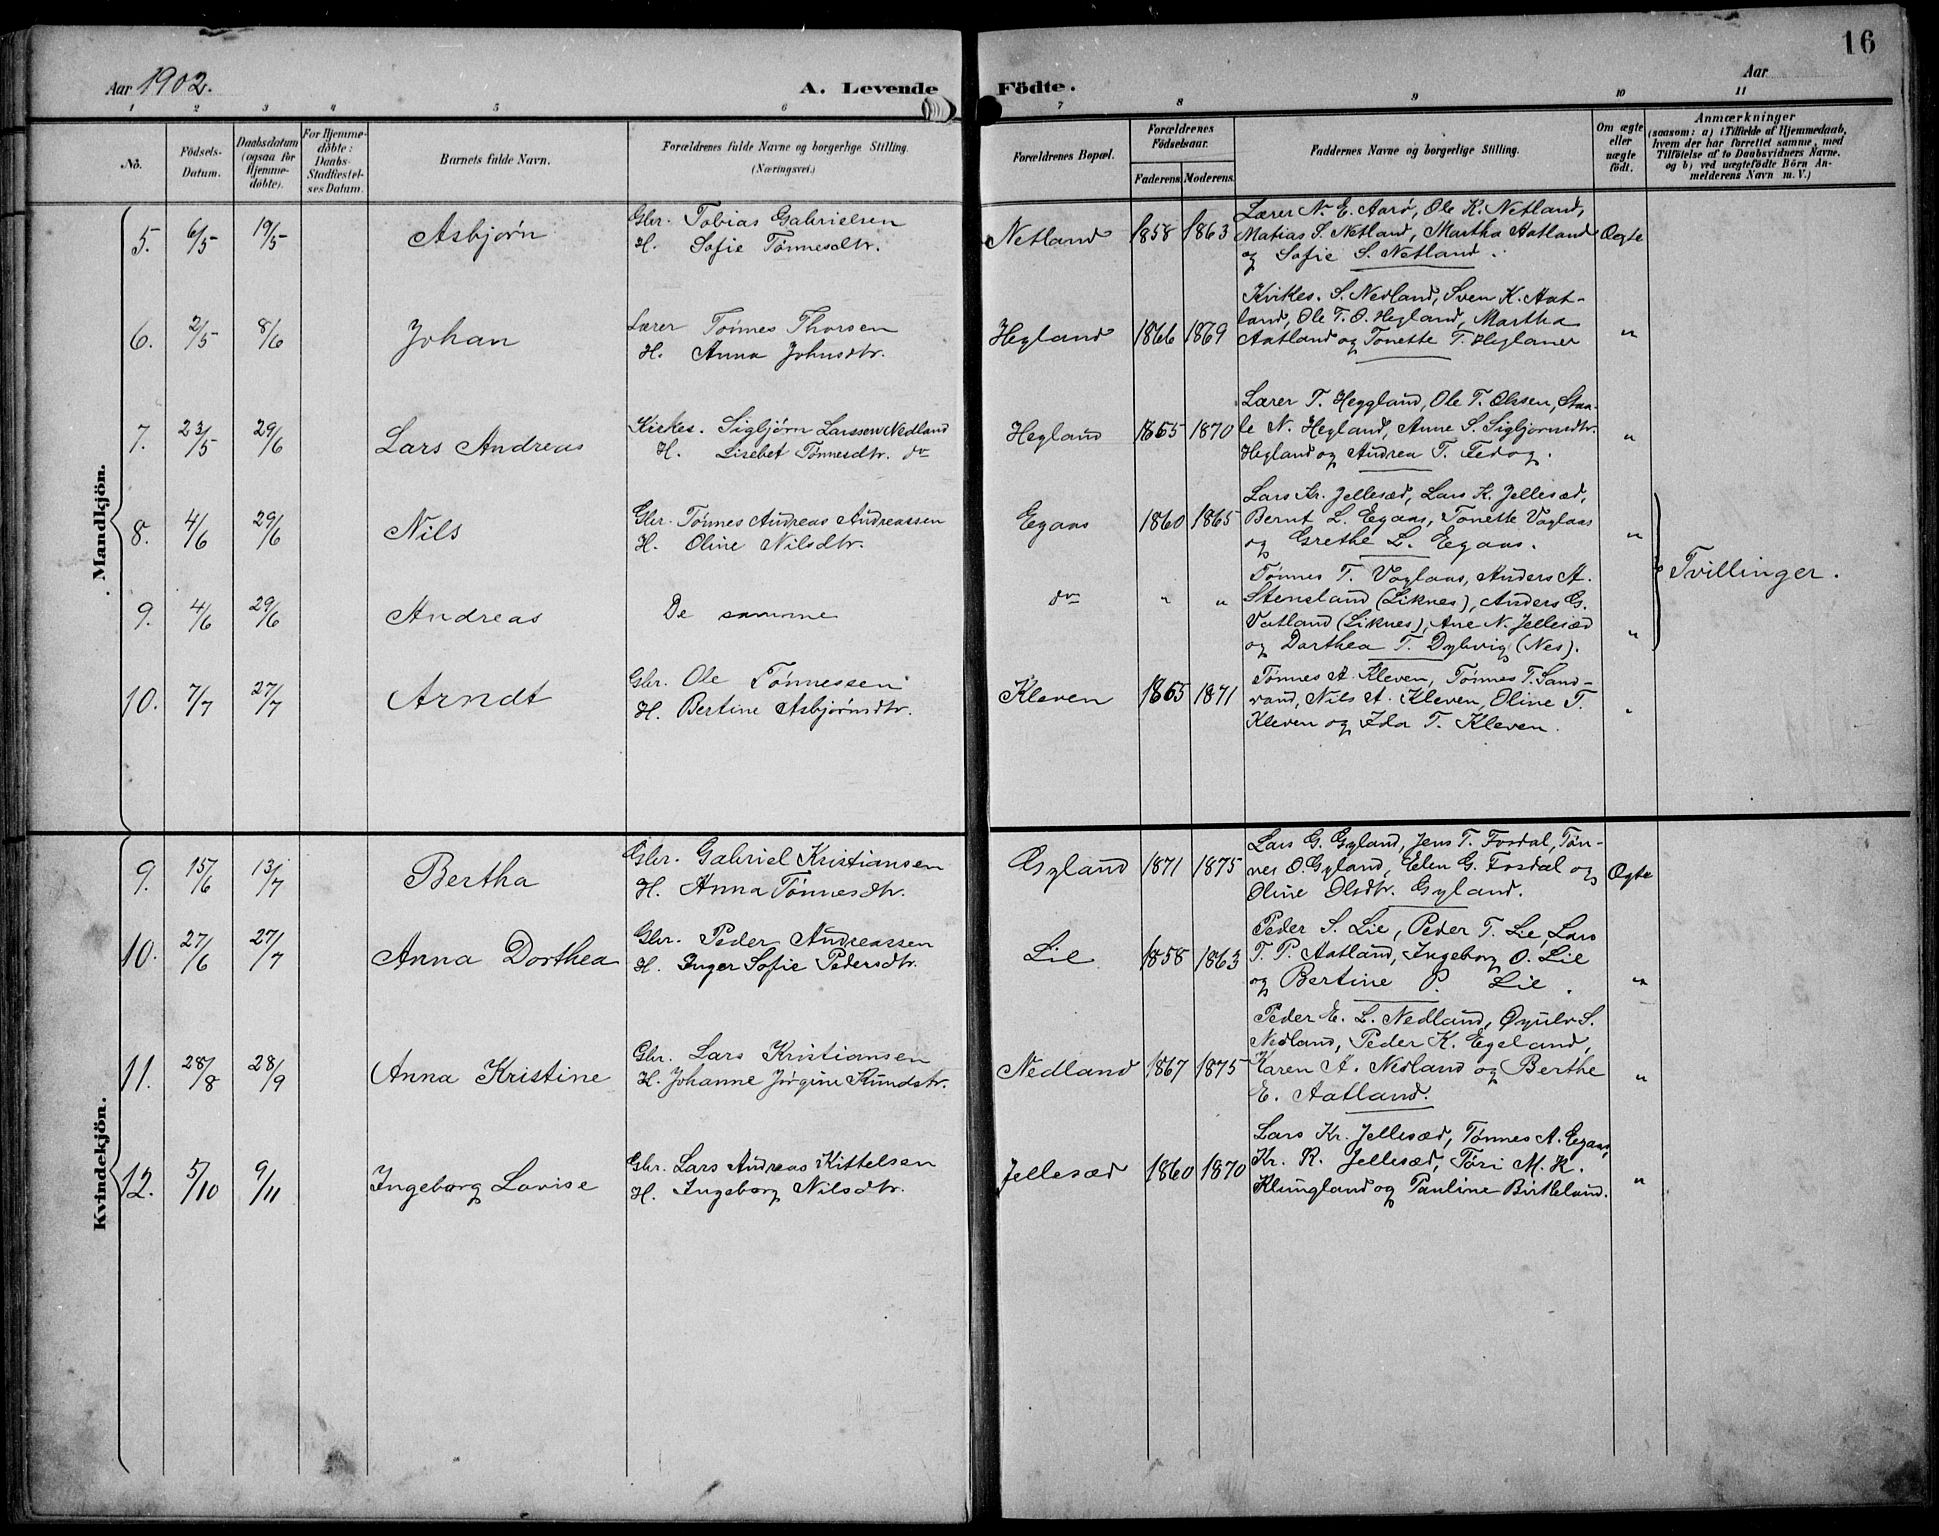 16
Aar 1902.
A. Levende Födte.
Aar
1 2 3 4 5 6 7 8 9 10 11
No.
Födsels-
Datum.
Daabsdatum
(ogsaa for
Hjemme-
döbte).
For Hjemme-
döbte:
Daabs-
Stadfæstel-
ses Datum.
Barnets fulde Navn.
Forældrenes fulde Navne og borgerlige Stilling.
(Næringsvei.)
Forældrenes Bopæl.
Forældrenes
Födselsaar.
Faderens. Moderens.
Faddernes Navne og borgerlige Stilling.
Om ægte
eller
uægte
födt.
Anmærkninger
(saasom: a) i Tilfælde af Hjemmedaab,
hvem der har forrettet samme, med
Tilföielse af to Daabsvidners Navne,
og b) ved uægtefödte Börn An-
melderens Navn m. V.)
Mandkjön.
5. 6/5 19/5 Asbjørn
Gbr. Tobias Gabrielsen
H. Sofie Tønnesdtr.
Netland 1858 1863
Lærer N. E. Aarø, Ole K. Netland,
Matias S. Netland, Martha Aatland
og Sofie S. Netland.
Ægte
6. 2/5 8/6 Johan
Lærer Tønnes Thorsen
H. Anna Johnsdtr.
Hegland 1866 1869
Kirkes. S. Nedland, Sven K. Aat-
land, Ole T. O. Hegland, Martha
Aatland og Tonette T. Hegland
"
7. 23/5 29/6 Lars Andreas
Kirkes. Sigbjørn Larssen Nedland
H. Lisebet Tønnesdtr. do
Hegland 1865 1870
Lærer T. Heggland, Ole T. Olssen, Staa-
le N. Hegland, Anne S. Sigbjørnsdtr.
Hegland og Andrea T. Fedog.
"
8. 4/6 29/6 Nils
Gbr. Tønnes Andreas Andreassen
H. Oline Nilsdtr.
Egaas 1860 1865
Lars Kr. Jellesæd, Lars K. Jellesæd,
Bernt L. Egaas, Tonette Voglaas
og Grethe L. Egaas.
"
Tvillinger.
9. 4/6 29/6 Andreas
De samme
do " "
Tønnes T. Voglaas, Anders A.
Stensland (Liknes), Anders G.
Vatland (Liknes), Ane N. Jellesæd
og Dorthea T. Dybvig (Nes).
"
10. 7/7 27/7 Arndt
Gbr. Ole Tønnessen
H. Bertine Asbjørnsdtr.
Kleven 1865 1871
Tønnes A. Kleven, Tønnes T. Sand-
vand, Nils A. Kleven, Oline T.
Kleven og Ida T. Kleven.
"
Kvindekjön.
9. 15/6 13/7 Bertha
Gbr. Gabriel Kristiansen
H. Anna Tønnesdtr.
Gyland 1871 1875
Lars G. Gyland, Jens T. Fosdal, Tøn-
nes O. Gyland, Elen G. Fosdal og
Oline Olsdtr. Gyland.
Ægte
10. 27/6 27/7 Anna Dorthea
Gbr. Peder Andreassen
H. Inger Sofie Pedersdtr.
Lie 1858 1863
Peder S. Lie, Peder T. Lie, Lars
T. P. Aatland, Ingeborg O. Lie
og Bertine P. Lie.
"
11. 28/8 28/9 Anna Kristine
Gbr. Lars Kristiansen
H. Johanne Jørgine Knudsdtr.
Nedland 1867 1875
Peder E. L. Nedland, Øyulv S.
Nedland, Peder K. Egeland,
Karen A. Nedland og Berthe
E. Aatland.
"
12. 5/10 9/11 Ingeborg Lovise
Gbr. Lars Andreas Kittelsen
H. Ingeborg Nilsdtr.
Jellesæd 1860 1870
Lars Kr. Jellesæd, Tønnes A. Egaas,
Kr. R. Jellesæd, Tøri M. K.
Klungland og Pauline Birkeland.
"